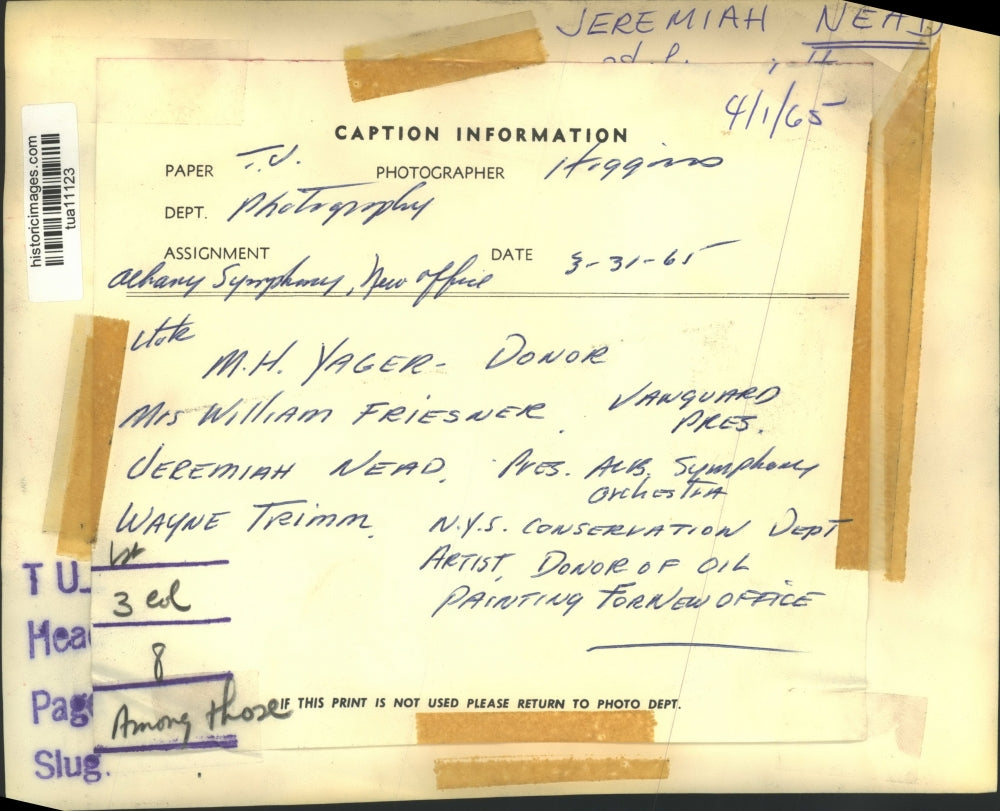 JEREMIAH NEAD
4/1/65
historicimages.com
tua11123
CAPTION INFORMATION
PAPER T.U. PHOTOGRAPHER Higgins
DEPT. Photography
ASSIGNMENT DATE 3-31-65
Albany Symphony, New office
M.H. YAGER - DONOR
Mrs William FRIESNER VANGUARD
PRES.
JEREMIAH NEAD, Pres. ALB. Symphony
ORChesTRA
WAYNE TRimm, N.Y.S. CONSERVATION DEPT
ARTIST, DONOR OF OIL
PAINTING FOR NEW OFFICE
TU
3 col
Hea
8
Page
Among those
Slug.
IF THIS PRINT IS NOT USED PLEASE RETURN TO PHOTO DEPT.